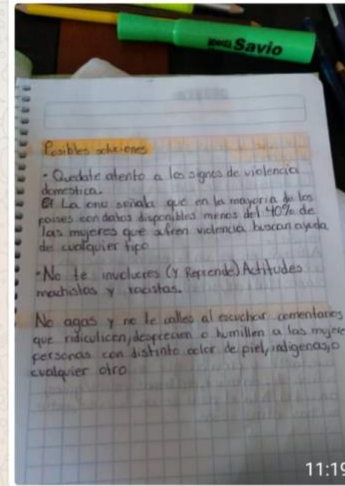 Savio
Posibles soluciones
- Quedate atento a los signos de violencia
domestica.
La onu señala que en la mayoria de los
paises con datos disponibles menos del 40% de
las mujeres que sufren violencia buscan ayuda
de cualquier tipo
- No te involucres (Y Reprende) Actitudes
machistas y racistas.
No agas y no te calles al escuchar comentarios
que ridiculicen, desprecien o humillen a las mujere
personas con distinto color de piel, indigenas, o
cualquier otro
11:19